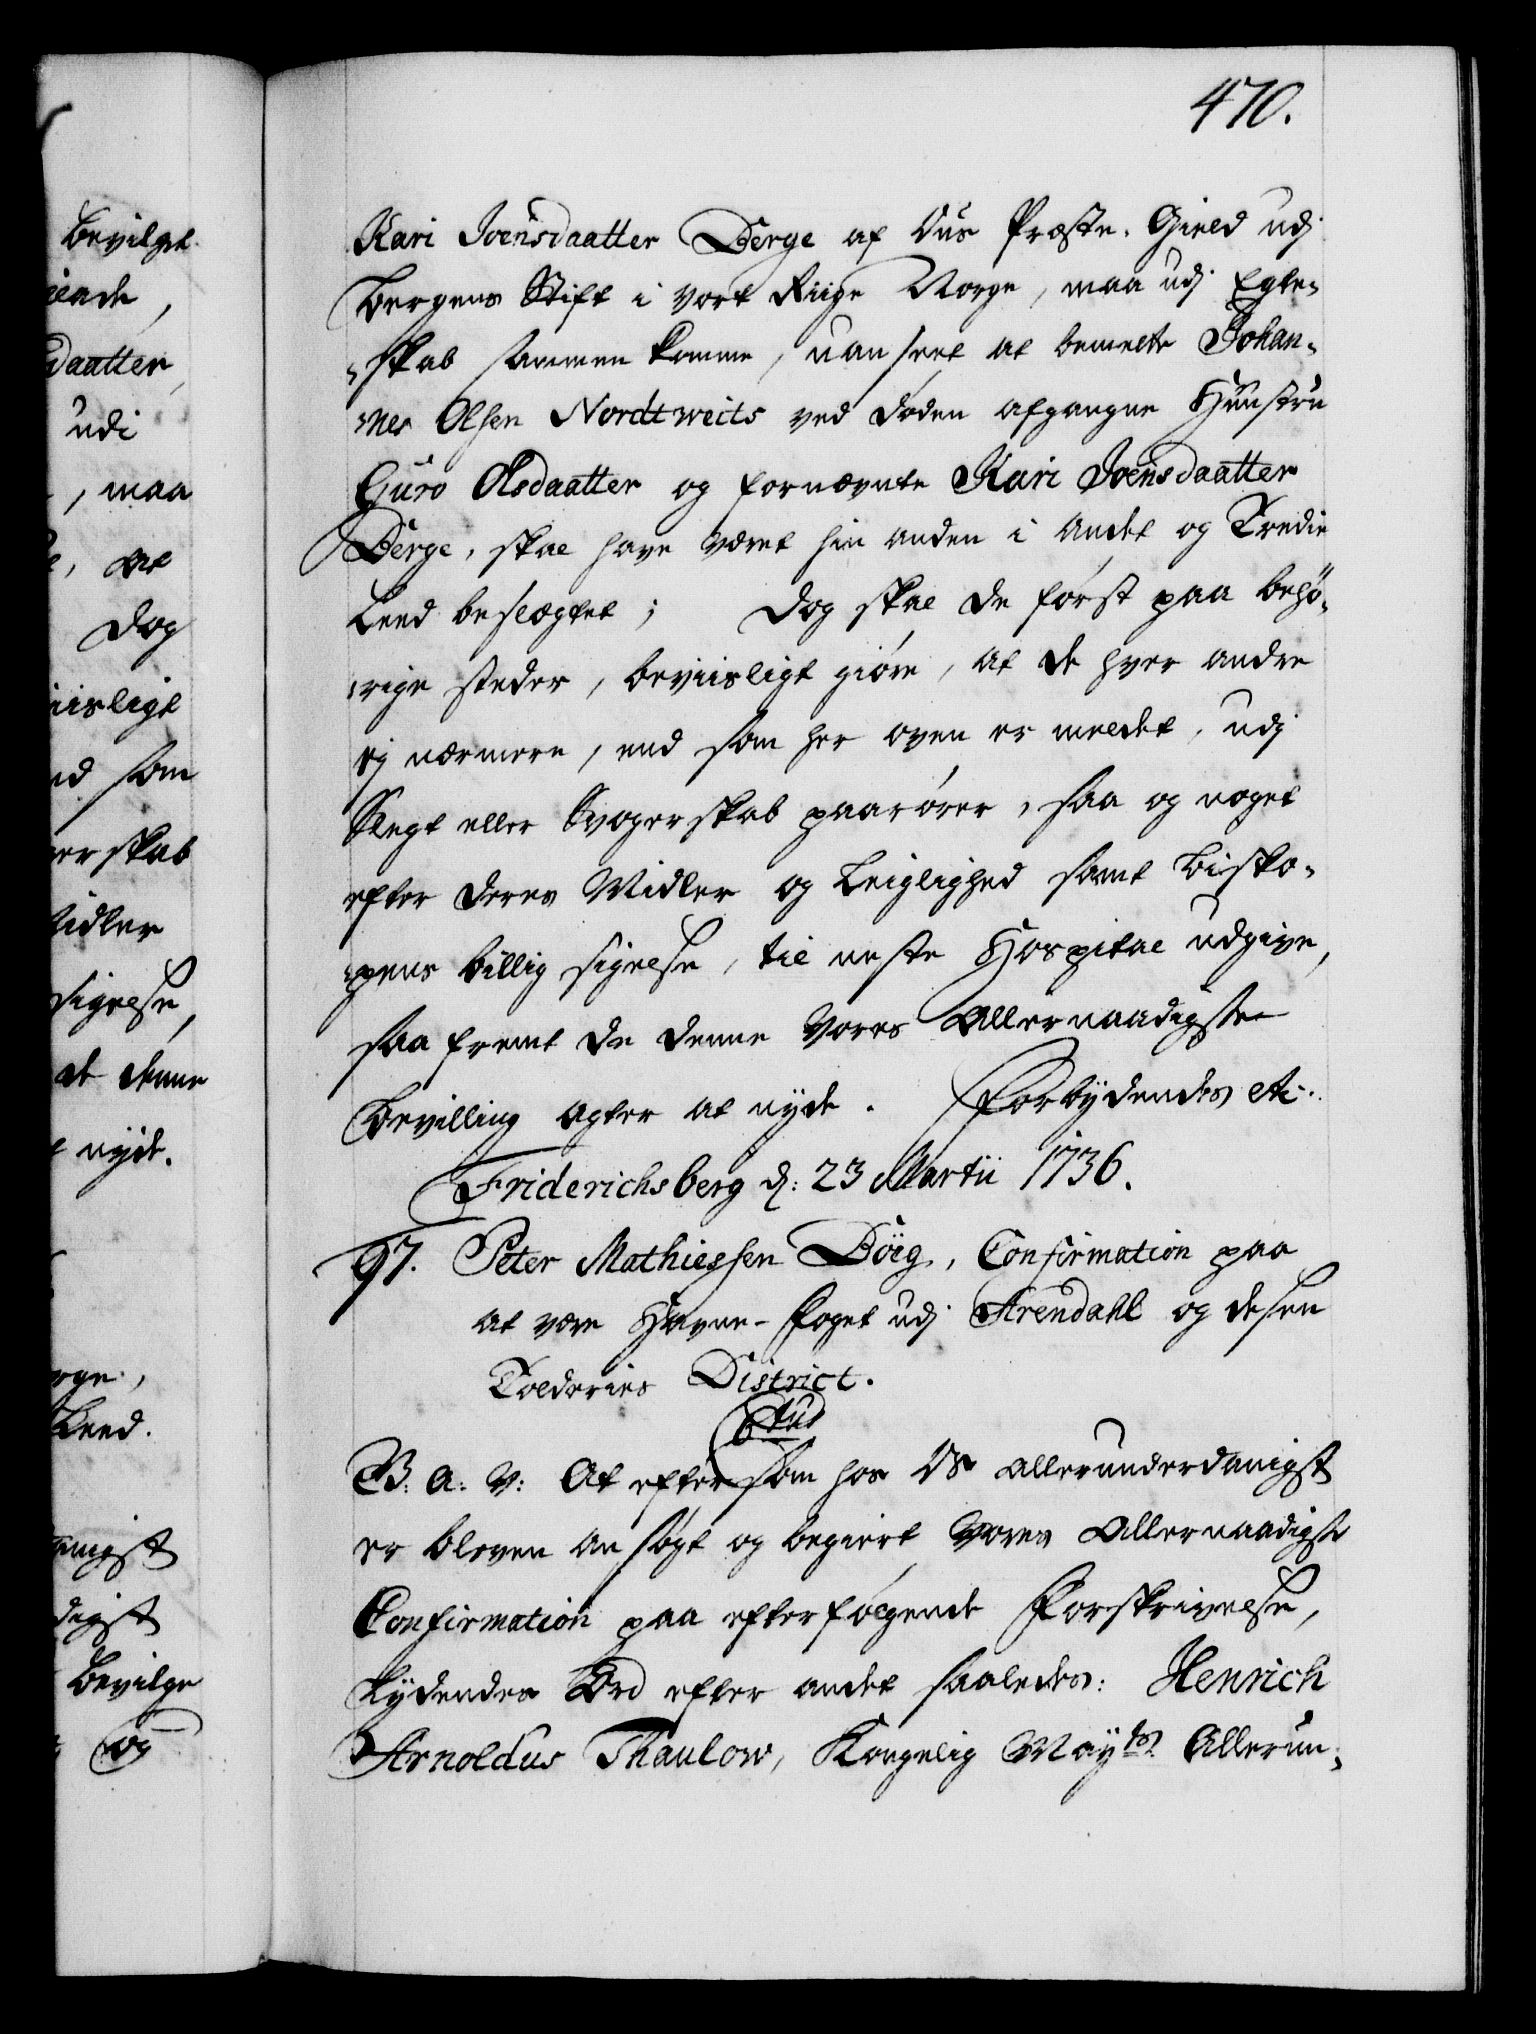 470.
Kari Joensdaatter Berge af Ous Præste-Gield udj
Bergens Stift i vort Riige Norge, maa udj Egte-
skab sammen komme, uanseet at bemelte Johan-
nes Olsen Nordtweits ved døden afgangne Hustru
Guro Olsdaatter og fornævnte Kari Joensdaatter
Berge, skal have været hin anden i Andet og Tredie
Leed beslægtet; Dog skal de først paa behö-
rige steder, beviisligt giøre, at de hver andre
ej nærmere, end som her oven er meldet, udj
Slegt eller Svogerskab paarører, saa og noget
efter deres Midler og Leiglighed samt Bisko-
pens billig sigelse, til neste Hospital udgive,
saafremt de denne Vores Allernaadigste
Bevilling agter at nyde. Forbydendes etc.
Friderichsberg d: 23 Martii 1736.
97. Peter Mathiessen Böig, Confirmation paa
at være Havne-Foget udj Arendahl og desen
Tolderies District.
B: A: V: At eftersom hos Os allerunderdanigst
er bleven ansøgt og begiert Vores Allernaadigste
Confirmation paa efterfølgende Forskrivelse,
Lydendes Ord efter andet saaledes: Henrich
Arnoldus Thaulow, Kongelig Mayts Allerun-
bevilget
daatter
udi
, maa
, at
Dog
iisligt
nd som
erskab
idler
sigelse,
de denne
nyde.
rge,
Leed.
anigst
digst
Bevilge
og